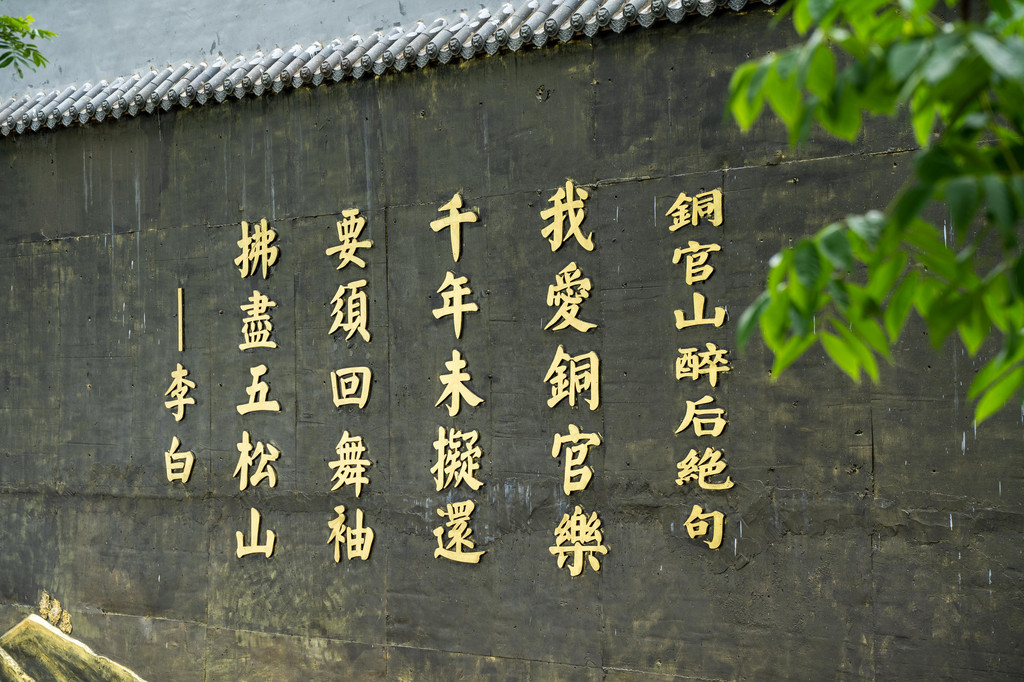 銅官山醉后絕句
我愛銅官樂
千年未擬還
要須回舞袖
拂盡五松山
——李白